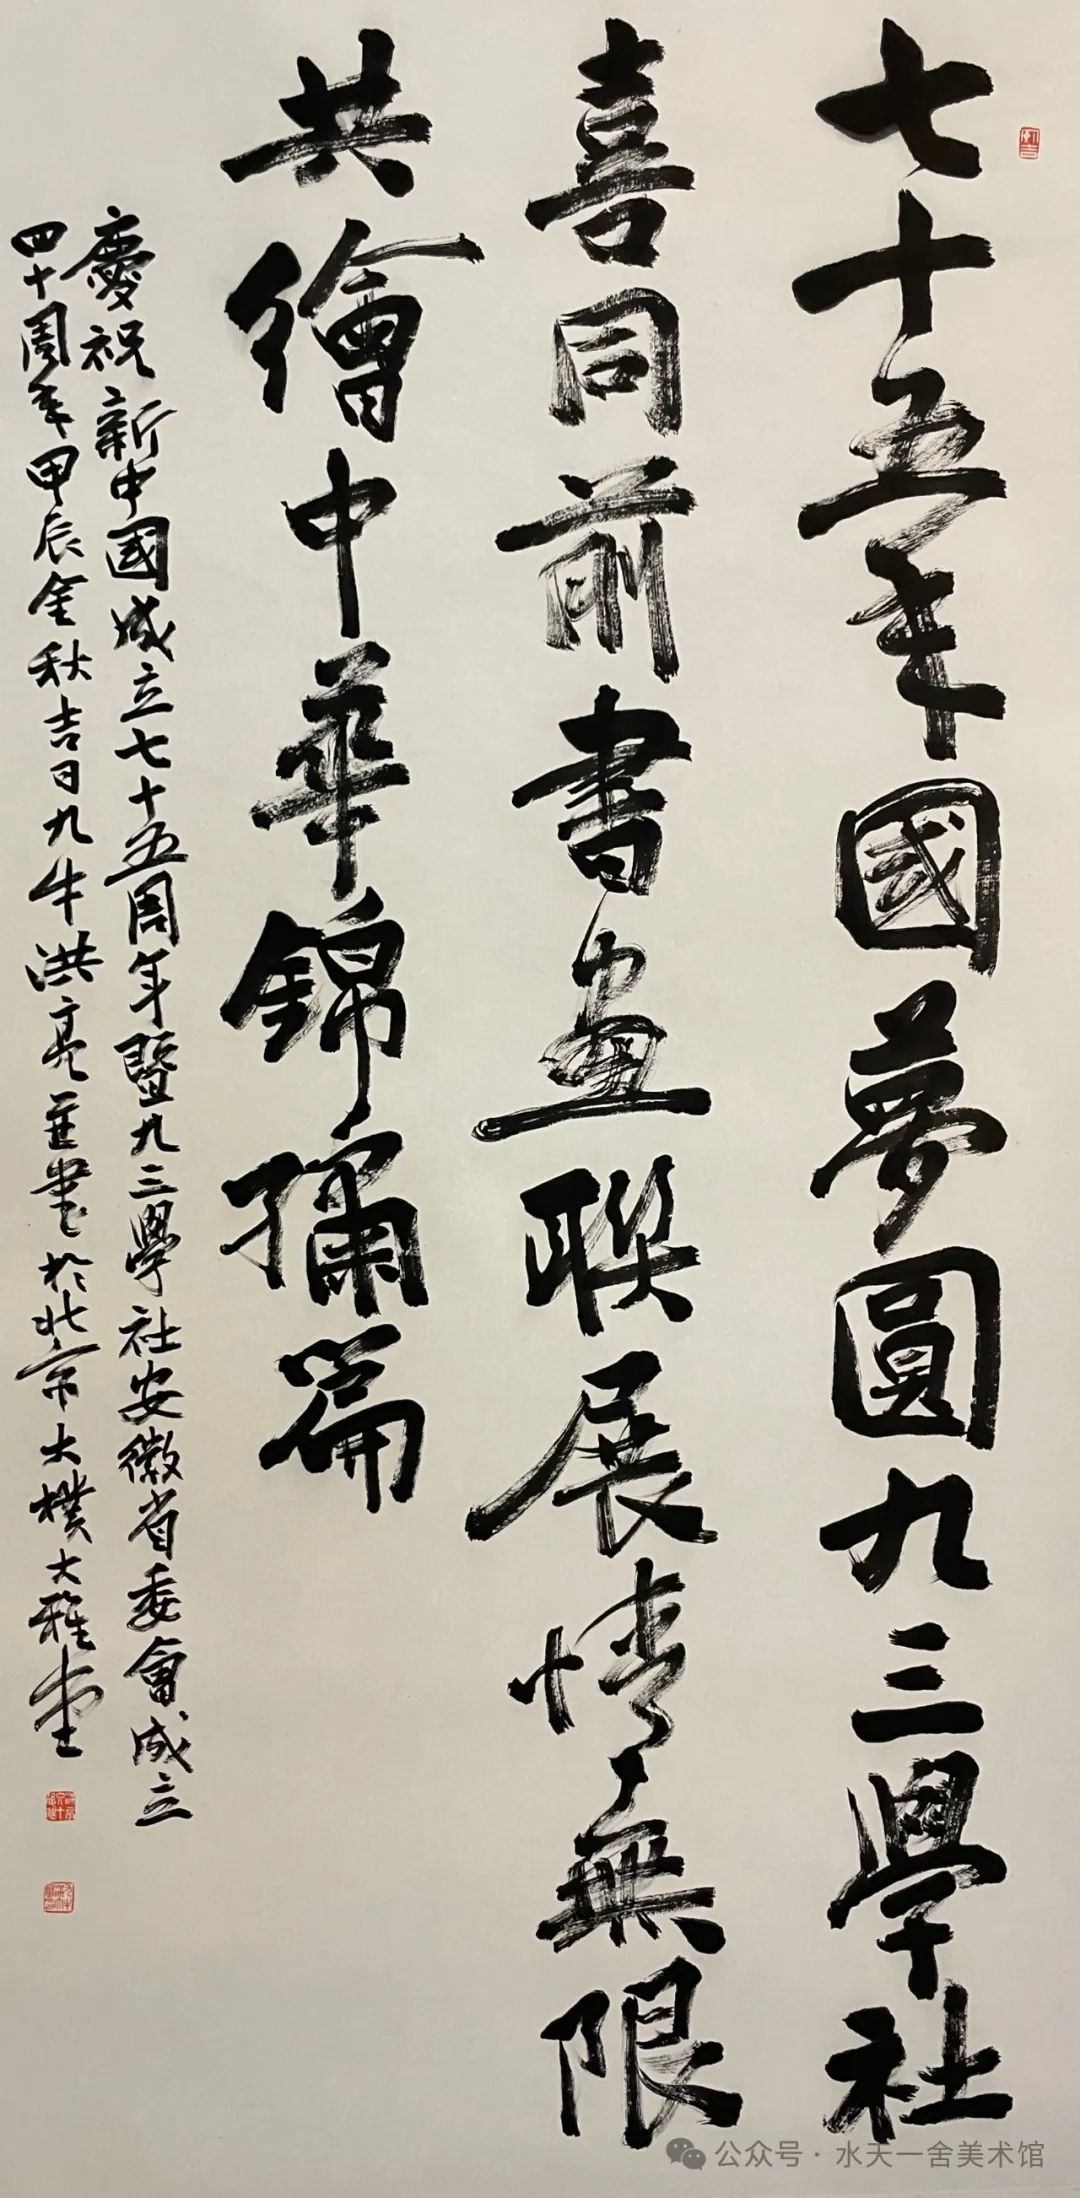 七十五年國夢圓九三學社
喜同前書畫聯展情無限
共繪中華錦繡篇
慶祝新中國成立七十五周年暨九三學社安徽省委會成立
四十周年甲辰金秋吉日九牛洪亮並書於北京大樸大雅堂
公众号 · 水天一舍美术馆